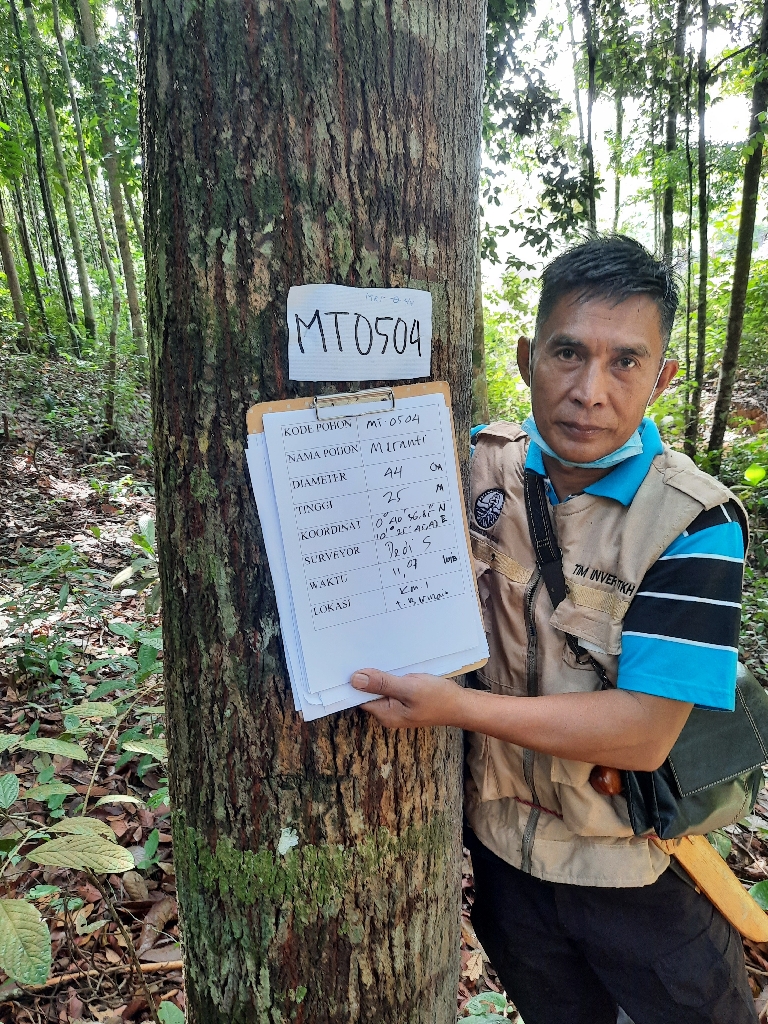 MT0504
KODE POHON MT.0504
NAMA POHON Meranti
DIAMETER 44 CM
TINGGI 25 M
KOORDINAT
SURVEYOR Dedi S
WAKTU 11,07 WIB
LOKASI Km 1
TIM INVENT TKH